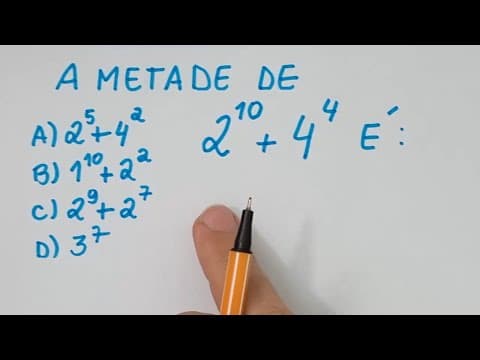 A METADE DE
2^10 + 4^4 E´:
A) 2^5 + 4^2
B) 1^10 + 2^2
C) 2^9 + 2^7
D) 3^7